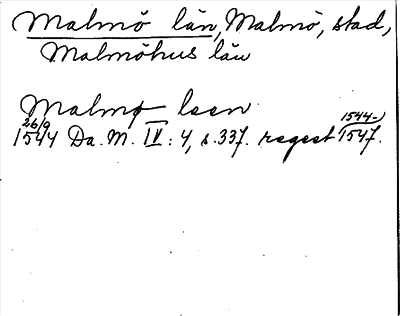 Malmö län, Malmö, stad,
Malmöhus län
Malmø leen
26/9 1544-
1544 Da. M. IV: 4, s. 337. regest 1547.